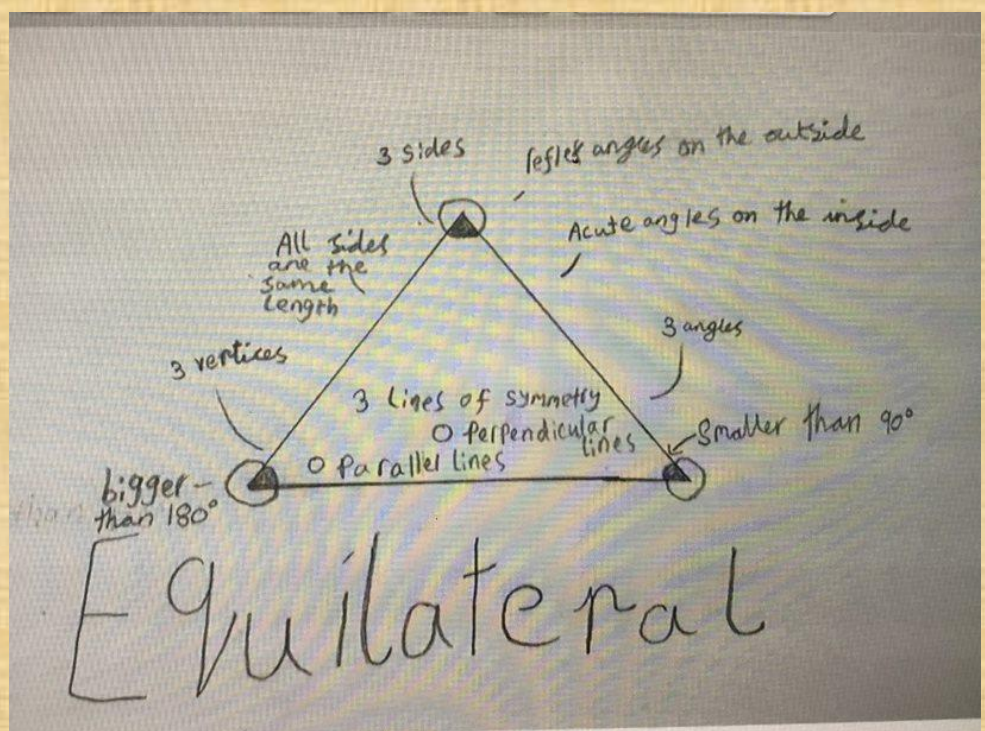 3 sides
reflex angles on the outside
Acute angles on the inside
All sides
are the
same
length
3 angles
3 vertices
3 lines of symmetry
0 perpendicular
lines
0 parallel lines
Smaller than 90°
bigger
than 180°
Equilateral